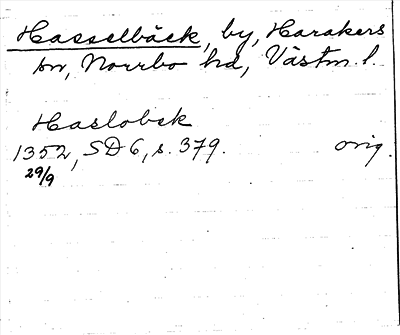 Hasselbäck, by, Harakers
sn, Norrbo hd, Västm. l.
Haslobek
1352, SD 6, s. 379. orig.
29/9